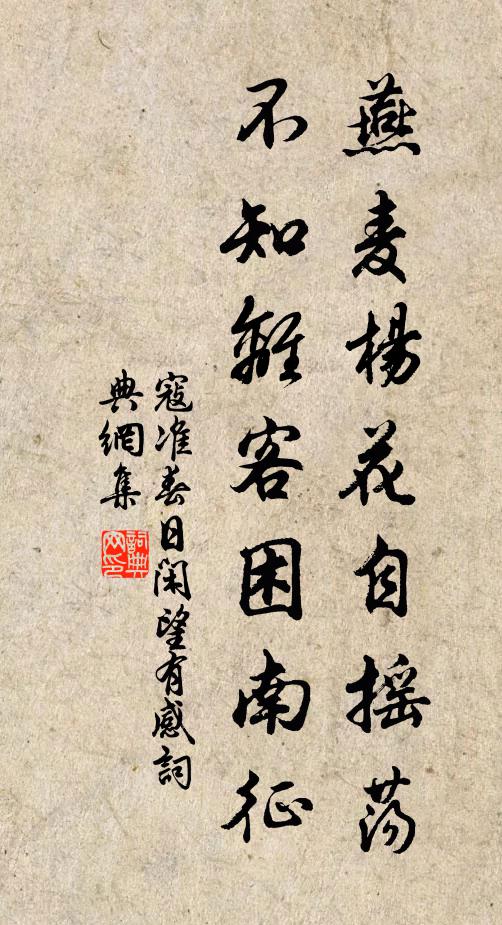 燕麦楊花自摇荡
不知離客困南征
寇准春日閑望有感詞
典網集
詞典
网印